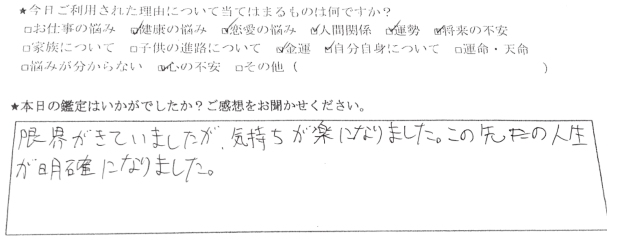 ★今日ご利用された理由について当てはまるものは何ですか?
□お仕事の悩み ☑健康の悩み ☑恋愛の悩み ☑人間関係 ☑運勢 ☑将来の不安
□家族について □子供の進路について ☑金運 ☑自分自身について □運命・天命
□悩みが分からない ☑心の不安 □その他( )
★本日の鑑定はいかがでしたか?ご感想をお聞かせください。
限界がきていましたが、気持ちが楽になりました。この先の人生
が明確になりました。